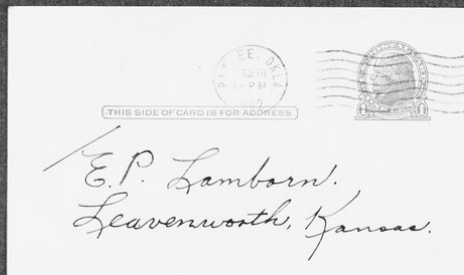 EE, OKLA.
1-PM
THIS SIDE OF CARD IS FOR ADDRESS
E.P. Lamborn.
Leavenworth, Kansas.